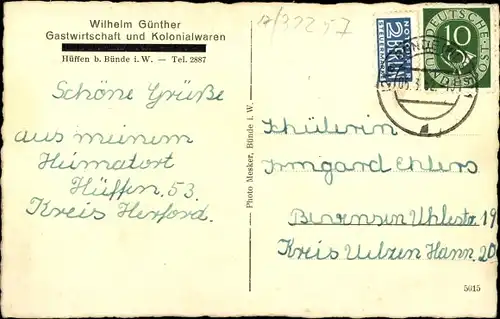 Wilhelm Günther
Gastwirtschaft und Kolonialwaren
Hüffen b. Bünde i. W. — Tel. 2887
Schöne Grüße
aus meinem
Heimatort
Hüffen. 53.
Kreis Herford.
Photo Mesker, Bünde i. W.
A/32257
NOTOPFER
2 BERLIN
STEUERMARKE
DEUTSCHE BUNDESPOST
10
Schülerin
Irmgard Ehlers
Bevensen Uhlestr 19
Kreis Uelzen Hann. 20
5615